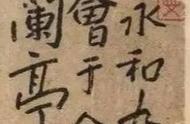 永和九
會于
蘭亭